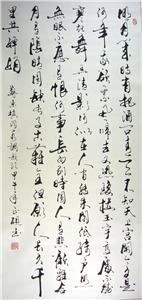 明月幾時有把酒問青天不知天上宮闕今夕是
何年我欲乘風歸去又恐瓊樓玉宇高處不勝
寒起舞弄清影何似在人間轉朱閣低綺戶照
無眠不應有恨何事長向別時圓人有悲歡離合
月有陰晴圓缺此事古難全但願人長久千
里共嬋娟
蘇東坡水調歌頭甲午年